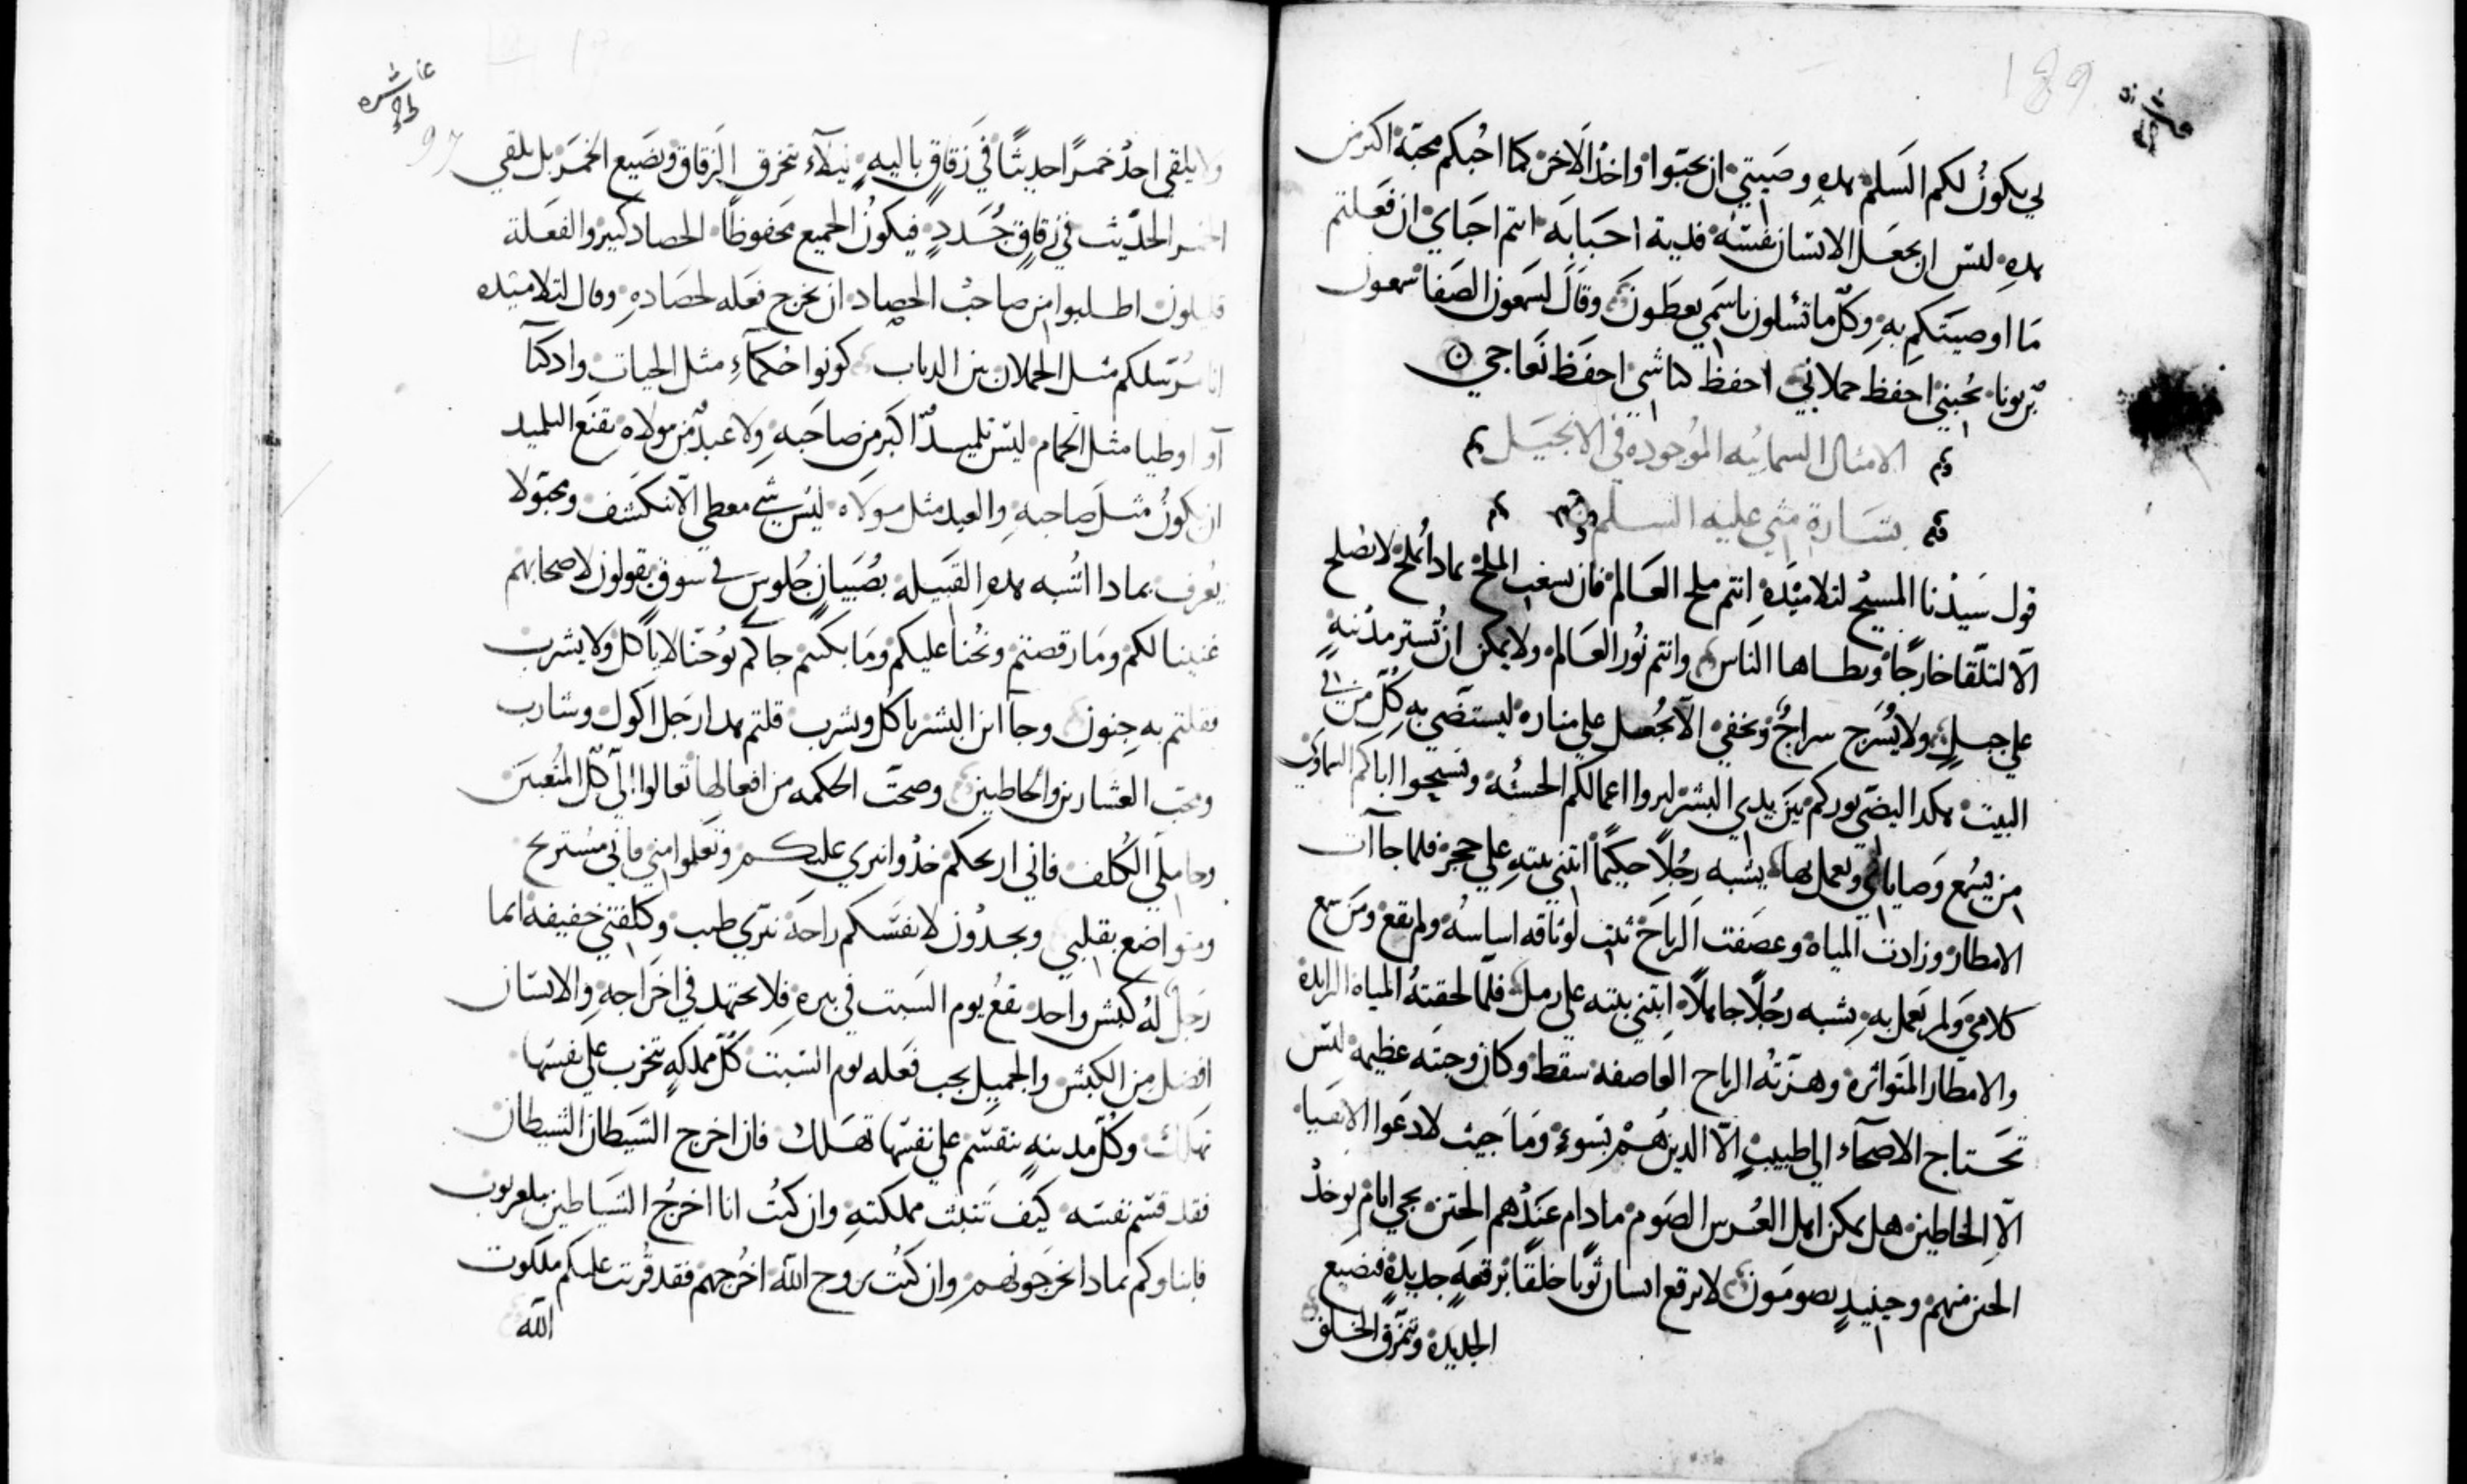 189
لي يكونُ لكم السَلم هده وصَيتي ان تحبّوا واحدٌ الاخر كما احُبكم محبّة اكثر من
هده ليس ان يجعَل الانسان نفسَه فدية احبَابَه انتم احبَاي ان فعَلتم
مَا اوصيتكم به وكلّ ما تسُلون باسَمي يعطَونَ وقَالَ لسَمعون الصَفا شمعون
بّر يونا تحُبني احفظ حملاني احفظ كباشي احفَظ نَعاجي
الامثال السمائيه الموُجوده في الانجيَل
بشَارة متي عليه السلم
قول سَيدْنا المسيحُ لتلاميَده انتم ملح العَالم فان سغب الملح بماد اُملح لا تصلح
الّا لتلّقا خارجًا ويطاها الناس وانتم نُور العَالم ولا يمكن ان تُستر مدُنيه
علي جبلٍ ولا يُسَرج سراجٌ ويخفي الّا يجُعل علي مناره ليستضَي به كُلّ من في
البيت هكدا ليضَي نوركم بَين يدي البشر ليروا اعمالكم الحسنُه ونسبحوا اباكم السماوي
من يسَمع وَصاياي ويعمل بها يشبه رجُلًا حيكمًا ابتني بيته علي حجر فلما جاآت
الامطار وزادت المياه وعصَفت الرياحَ ثبت لوثاقه اساسُه ولم يقع ومن سمع
كلامي وَلم يَعمل به يشبه رجُلًا جاهلًا ابتني بيته علي رمل فلمّا لحقتهُ المياه الزايدة
والامطار المتواتره وهزته الرياح العَاصفه سقط وكان وجبَته عظيمه ليس
تحَتاج الاصحآء الي طبيبٍ الّا الدين هَم بسَوءٍ ومَا جيت لادعَوا الاتقيا
الّا الخاطين هل يمكن اهل العُرس الصَوم ما دام عَندُهم الختن يجي ايام يوخدُ
الختن منهم وحينيدٍ يصومَون لا يرقع انسان ثوبًا خلقًا برقعَهٍ جديدةٍ فتضيع
الجديَدة وتتمزَق الخلق
97
ولا يلقي احدُ خمرًا حديثًا في زَقاق باليهٍ ليلآء تتخرق الزقاق وتضَيع الخمَر بل يلقي
الخمر الحدّيث في زقاقٍ جُددٍ فيكونُ الجميع محَفوظًا الحصاد كبير والفعَلة
قليلون اطلبوا من صاحبُ الحصاد ان يخرج فعَله لحصَاده وقال لتلاميَده
انا مُرسلكم مثل الحملان بين الدياب كونوا حُكمآءِ مثل الحيات وادكيآ
آو اوطيا مثل الحمام ليَس تلميدٌ اكبر من صاحَبه ولا عبدٌ من مولاه يقنَع التلميد
ان يكونُ مثل صاحبه والعبد مثل مولاه ليَس شي معطي الّا ينكشَف ومخبَولا
يُعرف بمادا اشُبه هده القَبيله بصُبَيانٍ جُلوسٍ في سوقٍ يقولون لاصحابهم
غنينا لكم ومَا رقصتم ونُحنا عليكم ومَا بكيتم جاكم يُوحُنّا لا ياكل ولا يشرب
فقلتم به جِنون وجاآ ابن البشر ياكل ويشرب قلتم هدا رجَل اكول وشارب
ومحَب العشارين والخاطيين وصحّت الحكمه من افعالها تعالوا الّي كلّ المتُعبَين
وحامليّ الكُلف فاني اريحكم خدُوا نيري عليكم وتعَلموا مني فاني مسُتريح
ومتواضع بقلبي وتجدُون لانفسَكم راحَة نيَري طيب وكلفتي خفيفه ايما
رَجل لهُ كبش واحد يقعُ يوم السَبت في بيره فلا يجتهد في اخَراجه والانسَان
افضَل من الكبش والجميل يجب فعَله يوم السَبت كُلّ مملكهٍ تتخرب علي نفسَها
تهَلك وكُلّ مدينهٍ تنقسَم علي نفسَها تهَلك فان اخرج الشَيطان الشيطان
فقد قسَم نفسَه كيَف تَثبت مملكته وان كنتُ انا اخرجُ الشَياطين ببلعزبوب
فابناوكم بمادا تخرجَونهم وان كنتُ بروح الله اخُرجهم فقد قُربت عليكم ملكوت
الله